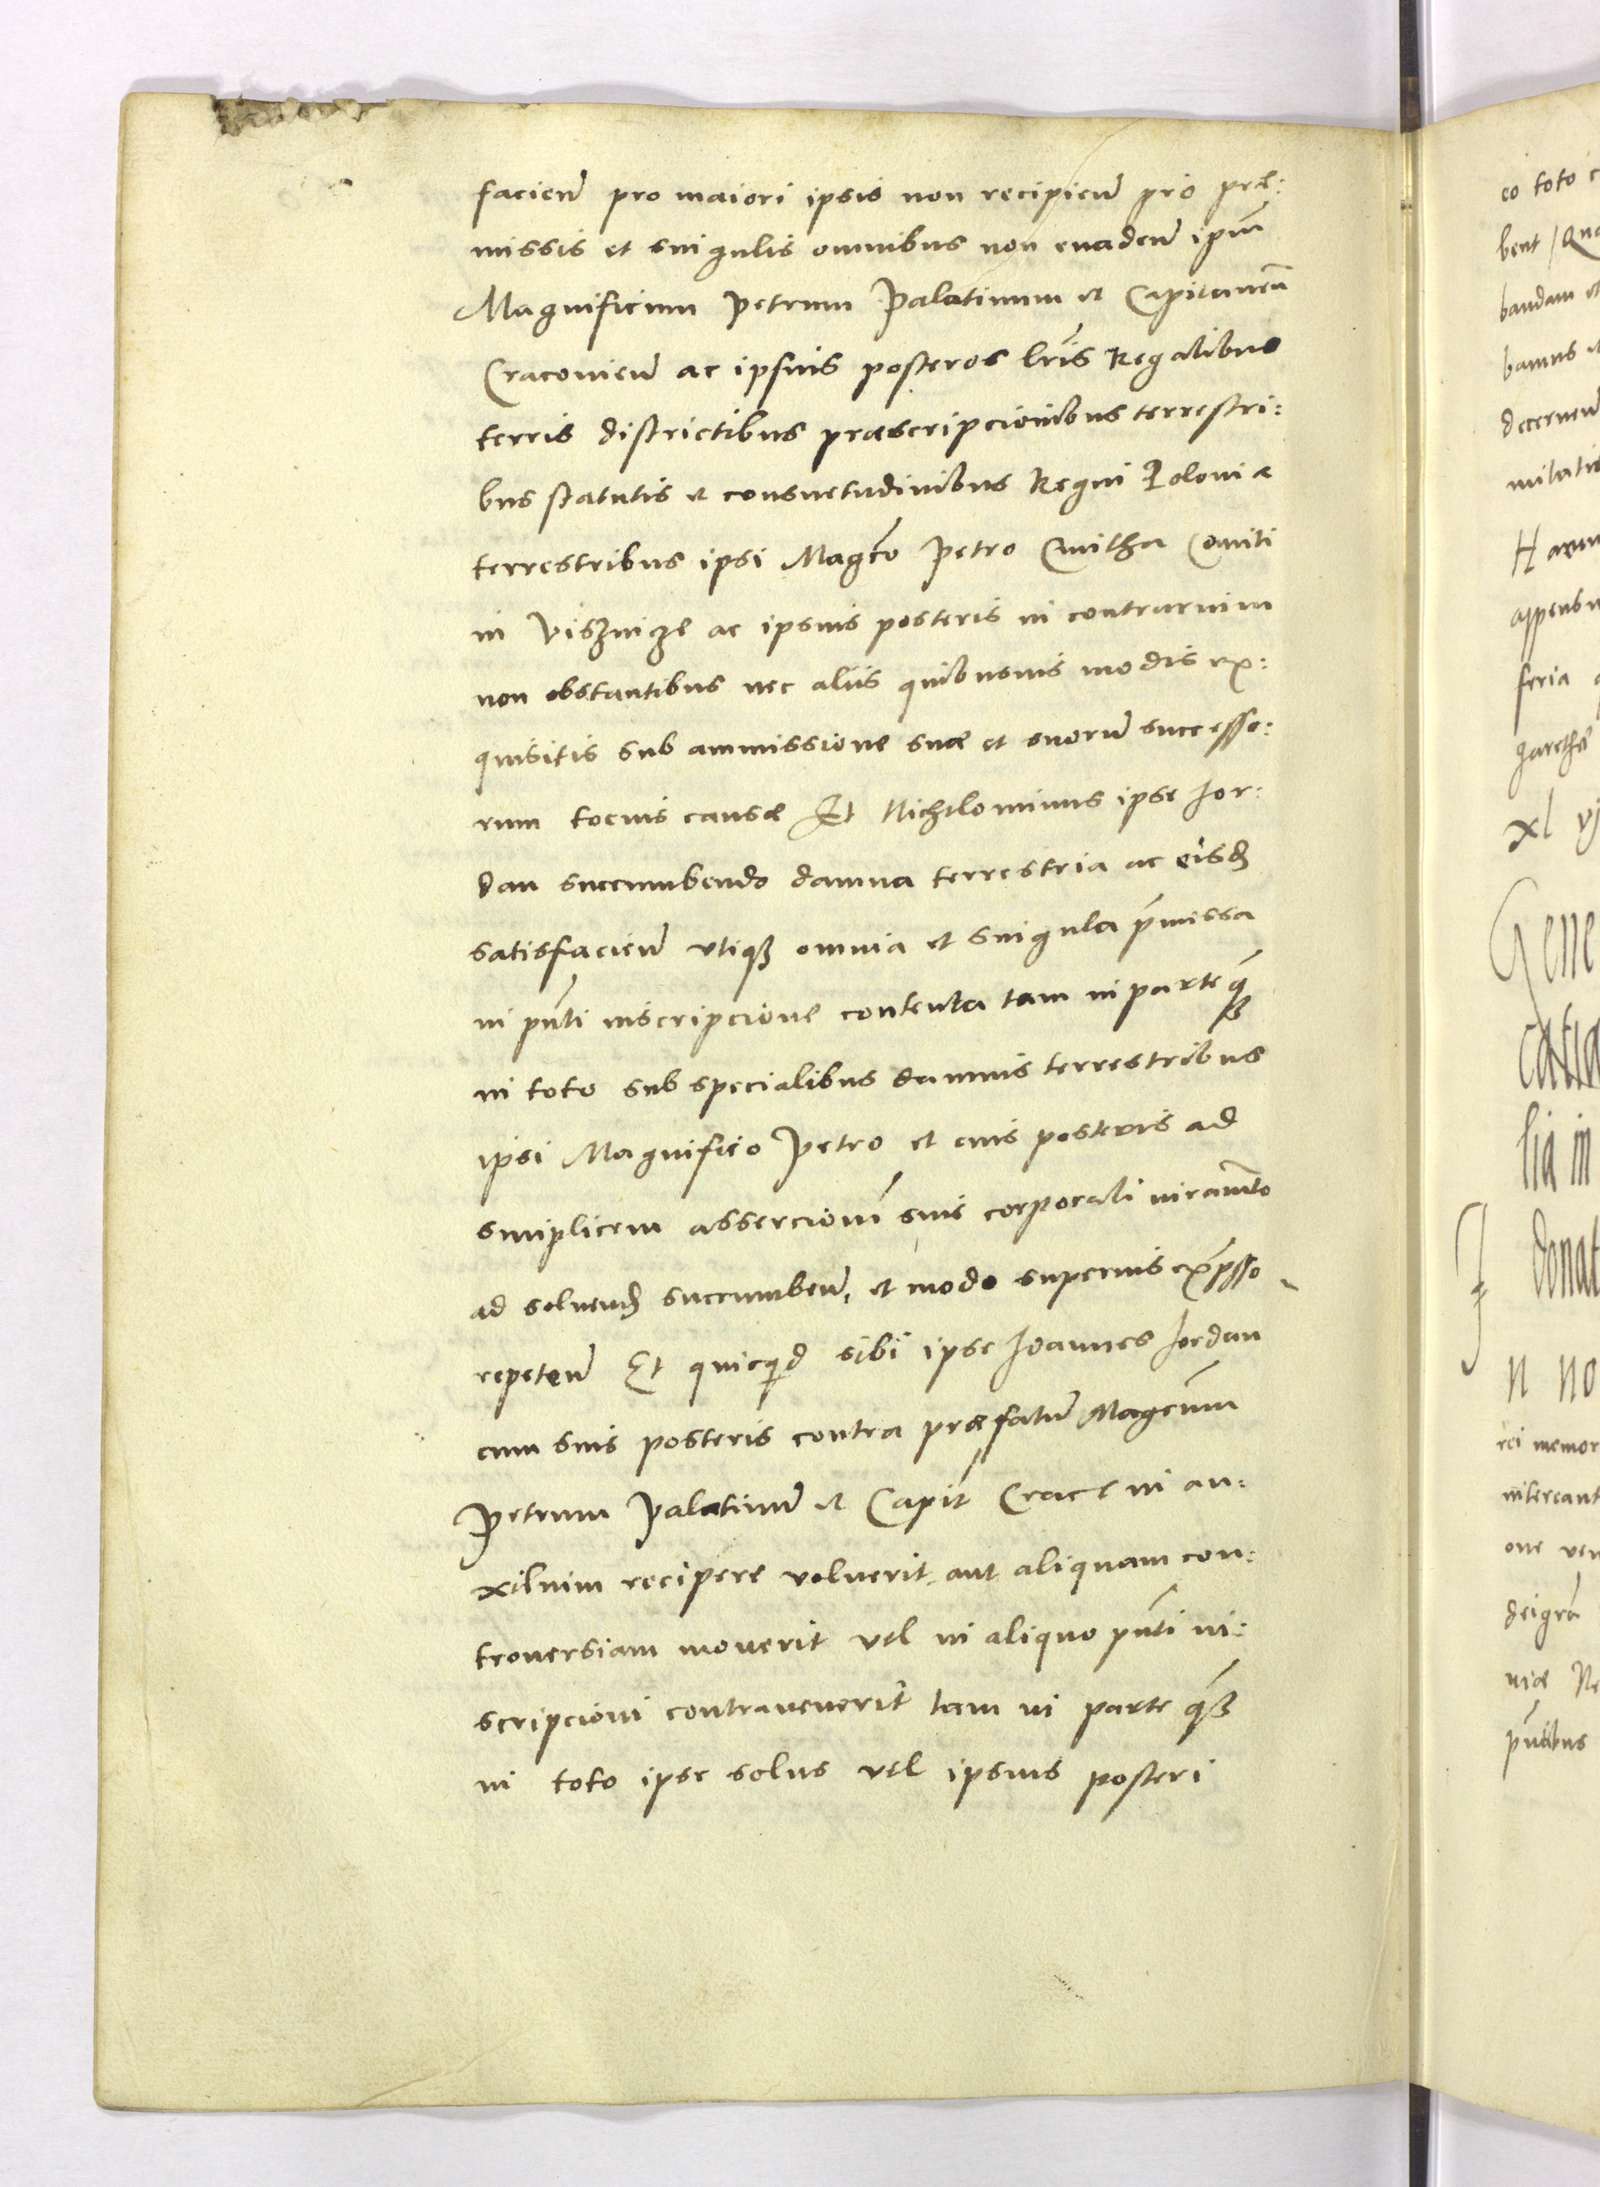 facien pro maiori ipsis non recipien pro præ:
missis et singulis omnibus non evaden ipm
Magnificum Petrum Palatinum et Capitaneu
Cracovien ac ipsius posteros lris Regalibus
terris districtibus præscripcionibus terrestri:
bus statutis et consuetudinibus Regni Poloniæ
terrestribus ipsi Magco Petro Cmitha Comiti
in Visznicze ac ipsius posteris in contrarium
non obstantibus nec aliis quibusvis modis ex:
quisitis sub ammissione suæ et suoru successo:
rum tocius causæ Et Nichilominus ipse Jor:
dan succumbendo damna terrestria ac eisd
satisfacien utiqz omnia et singula pmissa
in pnti inscripcione contenta tam in parte qz
in toto sub specialibus damnis terrestribus
ipsi Magnifico Petro et eius posteris ad
simplicem assercione suis corporali iuramto
ad solvend succumben, et modo superius expsso
repeten Et quicqd sibi ipse Joannes Jordan
cum suis posteris contra præfatu Magcum
Petrum Palatinu et Capit Crace in au:
xilium recipere voluerit aut aliquam con:
troversiam moverit vel in aliquo pnti in:
scripcioni contravenerit tam in parte qz
in toto ipse solus vel ipsius posteri
eo toto
bent / Qua
bandam et
bamus
decernen
Harum
feria
xl vj
Gene
catia
lia in
donat
n no
rei memor
intereant
one ven
dei gra
niæ Re
pntibus